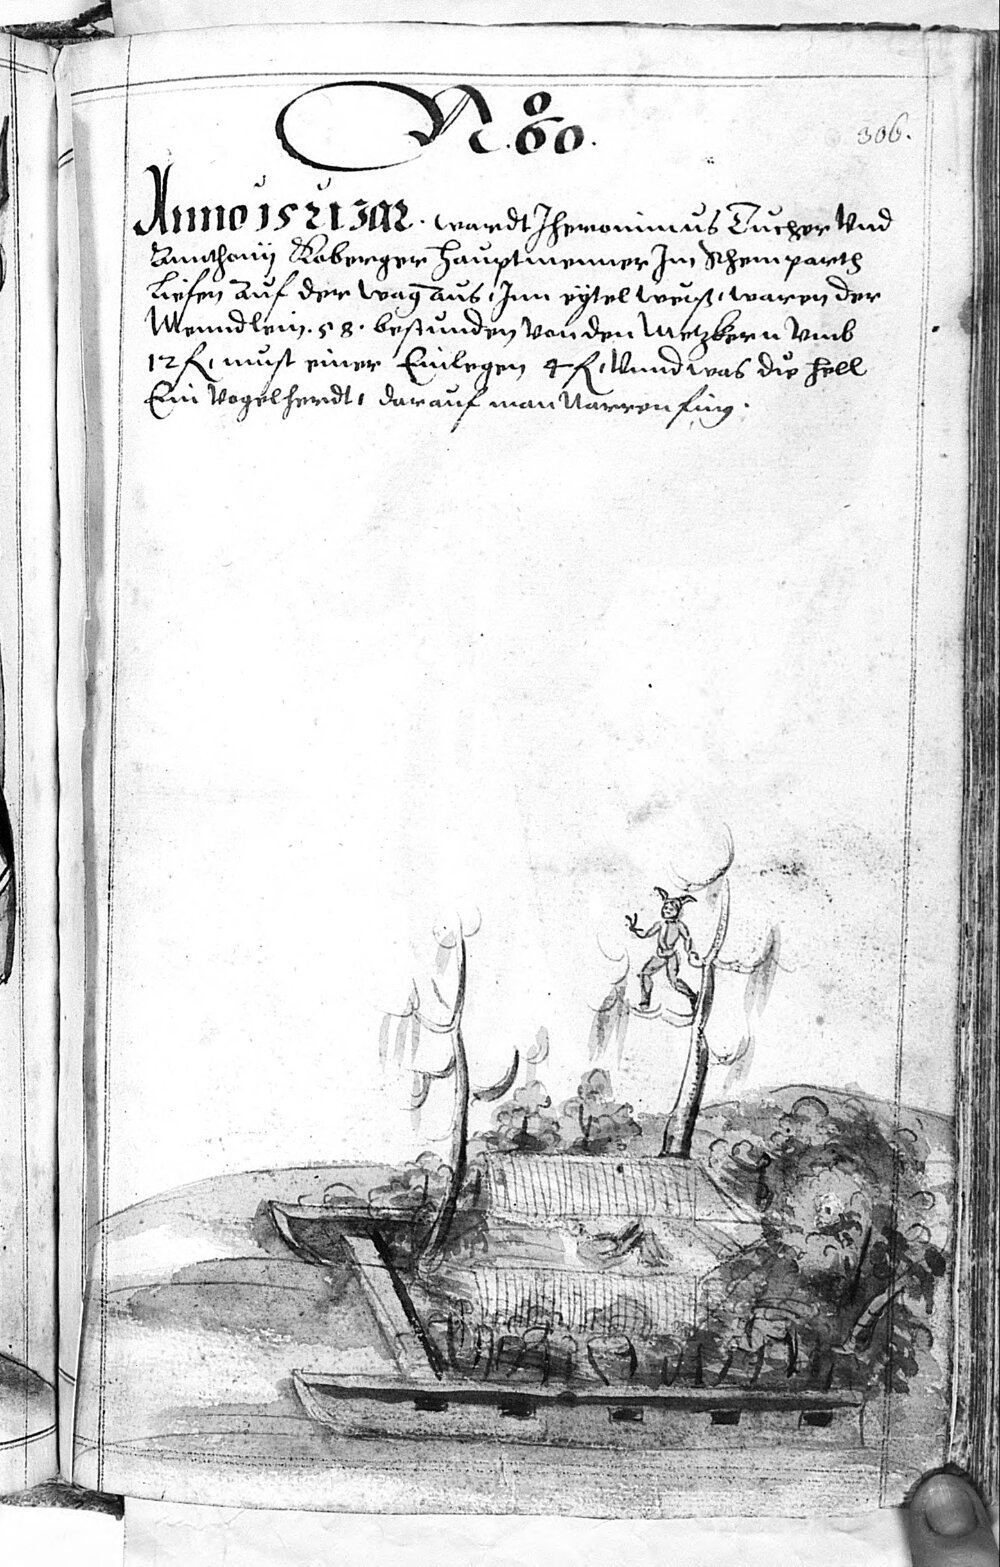 No. 60.
306.
Anno 1521 Jar. wardt Jheronimus Tucher Vnd
Annthonij Koberger Hauptmenner Jm Schempartt
Liefen Auf der wag Aus, Jnn eytel weiß, waren der
Menndlein. 58. bestunden von den Metzkern vmb
12 fl, must einer Einlegen 4 fl, Vnnd was die hell
Ein Vogelherdt, darauf man Narren fing.